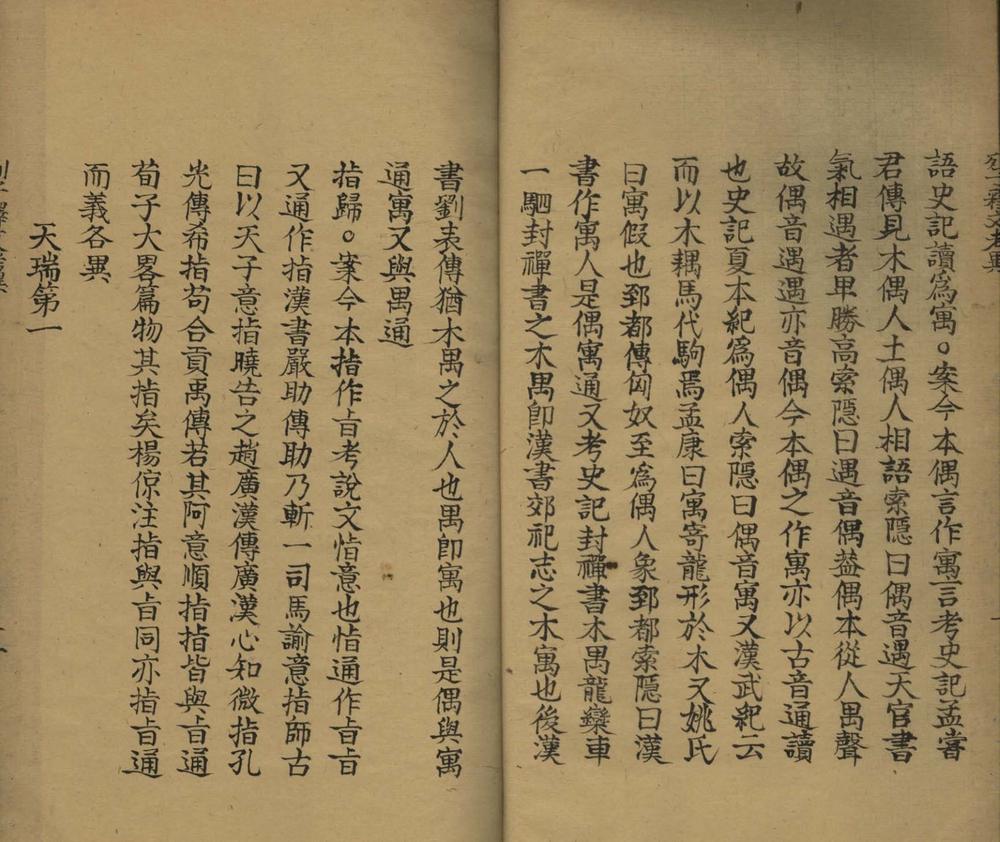 語史記讀爲寓。案今本偶言作寓言考史記孟嘗
君傳見木偶人土偶人相語索隱曰偶音遇天官書
氣相遇者卑勝高索隱曰遇音偶葢偶本從人禺聲
故偶音遇遇亦音偶今本偶之作寓亦以古音通讀
也史記夏本紀爲偶人索隱曰偶音寓又漢武紀云
而以木耦馬代駒焉孟康曰寓寄龍形於木又姚氏
曰寓假也郅都傳匈奴至爲偶人象郅都索隱曰漢
書作寓人是偶寓通又考史記封禪書木禺龍欒車
一駟封禪書之木禺卽漢書郊祀志之木寓也後漢
書劉表傳猶木禺之於人也禺卽寓也則是偶與寓
通寓又與禺通
指歸。案今本指作㫖考說文恉意也恉通作㫖㫖
又通作指漢書嚴助傳助乃斬一司馬諭意指師古
曰以天子意指曉告之趙廣漢傳廣漢心知微指孔
光傳希指苟合貢禹傳若其阿意順指指皆與㫖通
荀子大畧篇物其指矣楊倞注指與㫖同亦指㫖通
而義各異
天瑞第一